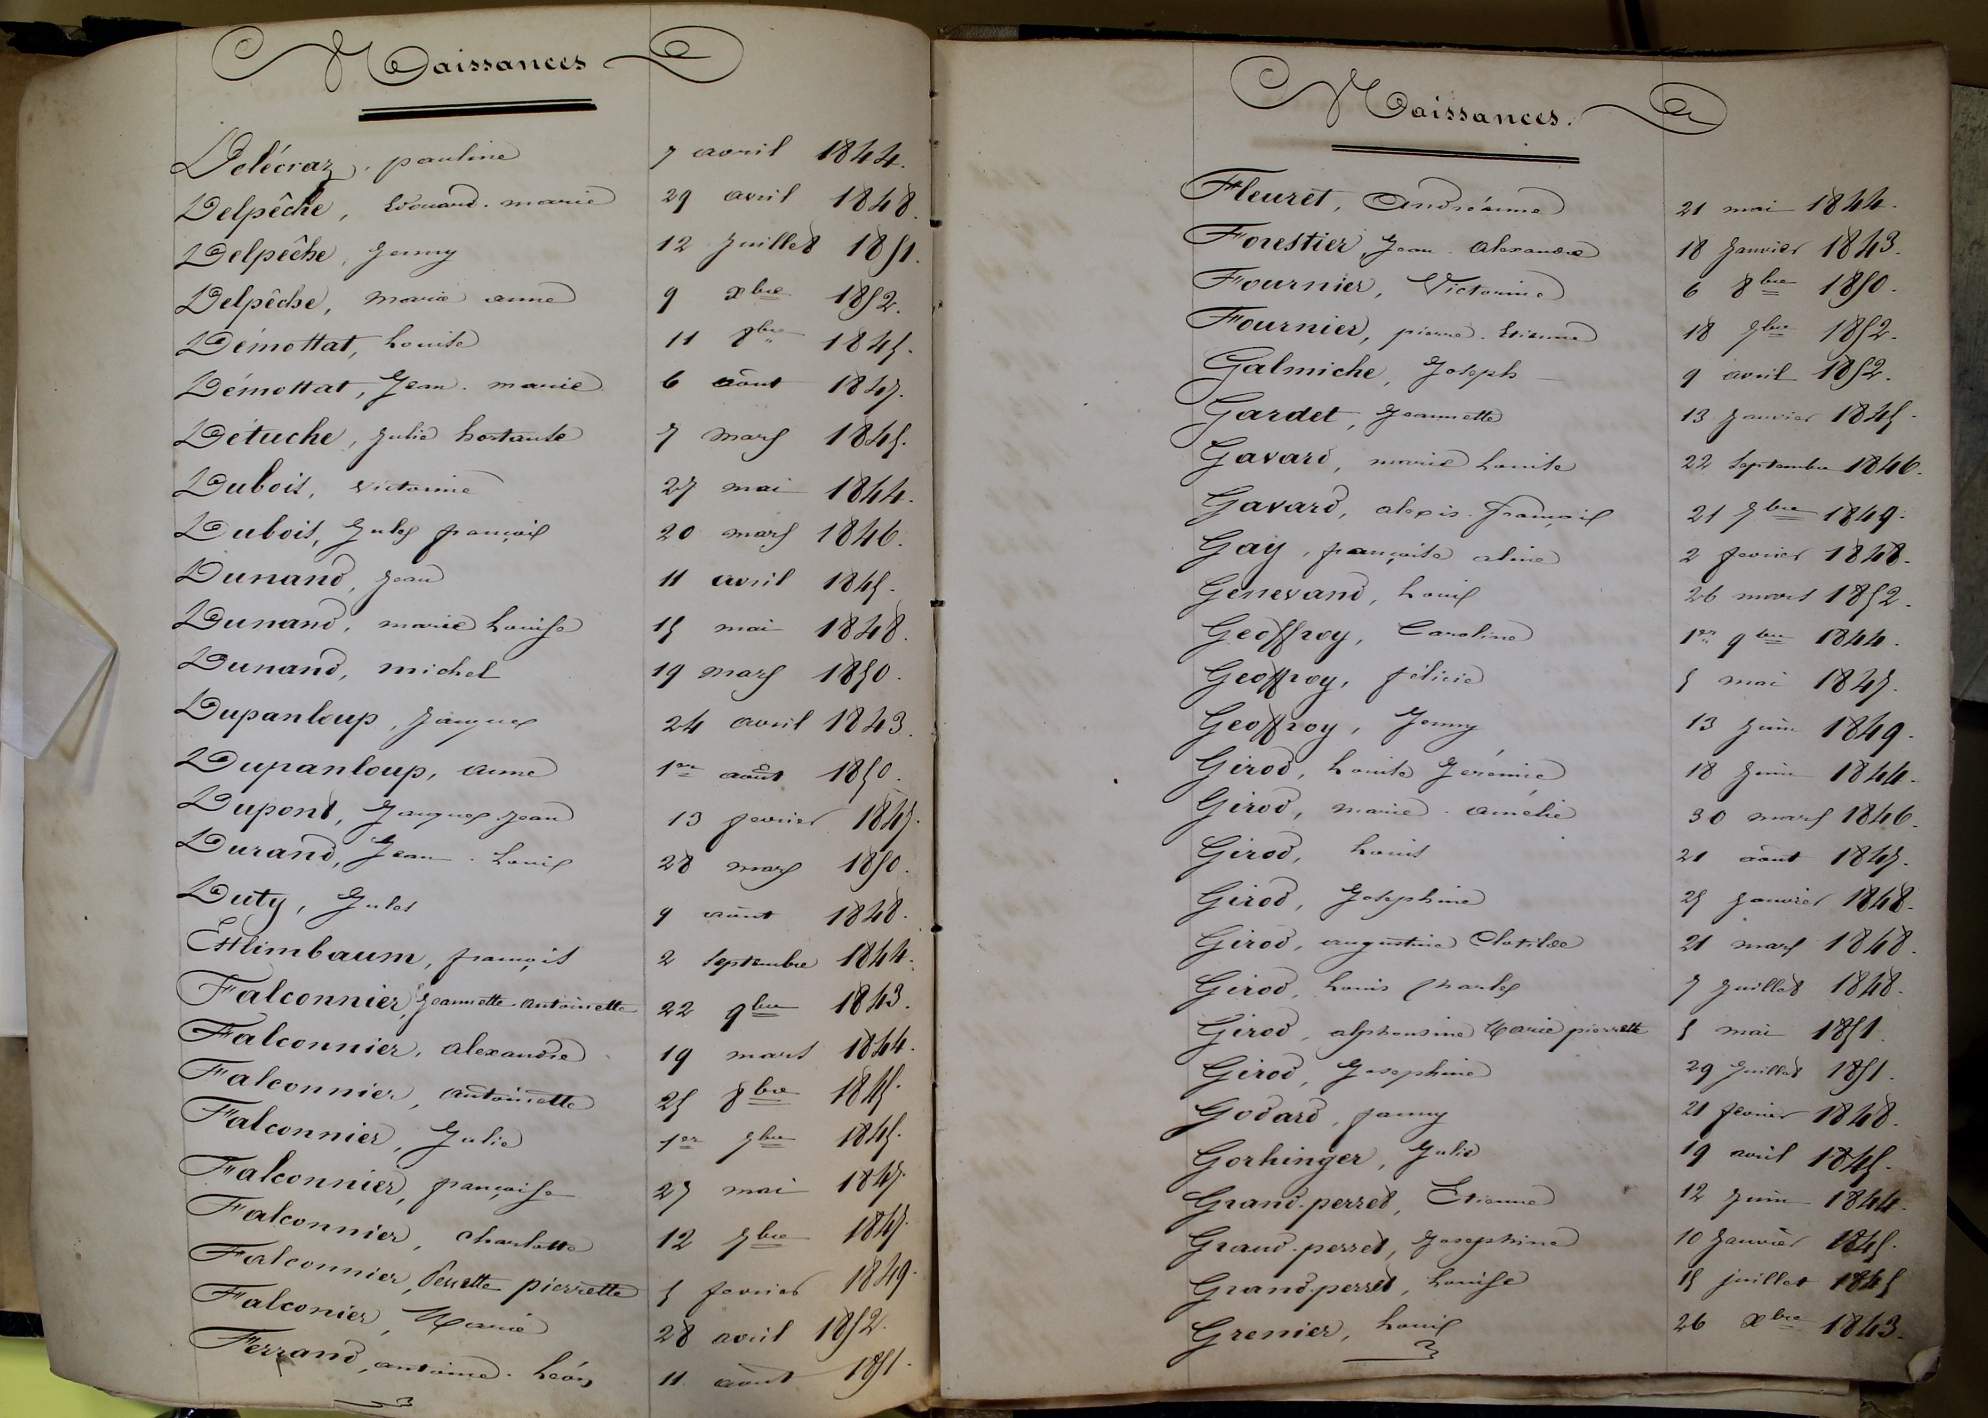 Naissances
Delécraz, pauline 7 avril 1844.
Delpêche, Edouard-marie 29 avril 1848.
Delpêche, Jenny 12 Juillet 1851.
Delpêche, marie anne 9 xbre 1852.
Démottat, Louise 11 8bre 1845.
Démottat, Jean-marie 6 août 1847.
Détuche, Julie hortense 7 mars 1845.
Dubois, victorine 27 mai 1844.
Dubois, Jules françois 20 mars 1846.
Dunand, Jean 11 avril 1845.
Dunand, marie Louise 15 mai 1848.
Dunand, michel 19 mars 1850.
Dupanloup, Jacques 24 avril 1843.
Dupanloup, anne 1er août 1850.
Dupont, Jacques Jean 13 fevrier 1847.
Durand, Jean-Louis 28 mars 1850.
Duty, Jules 9 août 1848.
Ettlimbaum, françois 2 Septembre 1844.
Falconnier, Jeannette-antoinette 22 9bre 1843.
Falconnier, alexandre 19 mars 1844.
Falconnier, antoinette 25 8bre 1845.
Falconnier, Julie 1er 7bre 1845.
Falconnier, françoise 27 mai 1847.
Falconnier, charlotte 12 7bre 1847.
Falconnier, Perrette pierrette 5 fevrier 1849.
Falconier, Marie 28 avril 1852.
Ferrand, antoine-Léon 11 août 1851.
Naissances.
Fleuret, Andréanne 21 mai 1844.
Forestier, Jean-alexandre 18 Janvier 1843.
Fournier, Victorine 6 8bre 1850.
Fournier, pierre-Etienne 18 7bre 1852.
Galmiche, Joseph 9 avril 1852.
Gardet, Jeannette 13 Janvier 1845.
Gavard, marie Louise 22 Septembre 1846.
Gavard, alexis-françois 21 7bre 1849.
Gay, françoise aline 2 fevrier 1848.
Genevand, Louis 26 mars 1852.
Geoffroy, Caroline 1er 9bre 1844.
Geoffroy, félicie 5 mai 1847.
Geoffroy, Jenny 13 Juin 1849.
Girod, Louise Jérémie 18 Juin 1844.
Girod, marie-amélie 30 mars 1846.
Girod, Louis 21 août 1847.
Girod, Josephine 25 Janvier 1848.
Girod, augustine Clotilde 21 mars 1848.
Girod, Louis Charles 7 Juillet 1848.
Girod, alphonsine Marie pierrette 5 mai 1851.
Girod, Josephine 29 Juillet 1851.
Godard, fanny 21 fevrier 1848.
Gorhinger, Julie 19 avril 1845.
Grand-perret, Etienne 12 Juin 1844.
Grand-perret, Josephine 10 Janvier 1845.
Grand-perret, Louise 15 juillet 1845
Grenier, Louis 26 xbre 1843.